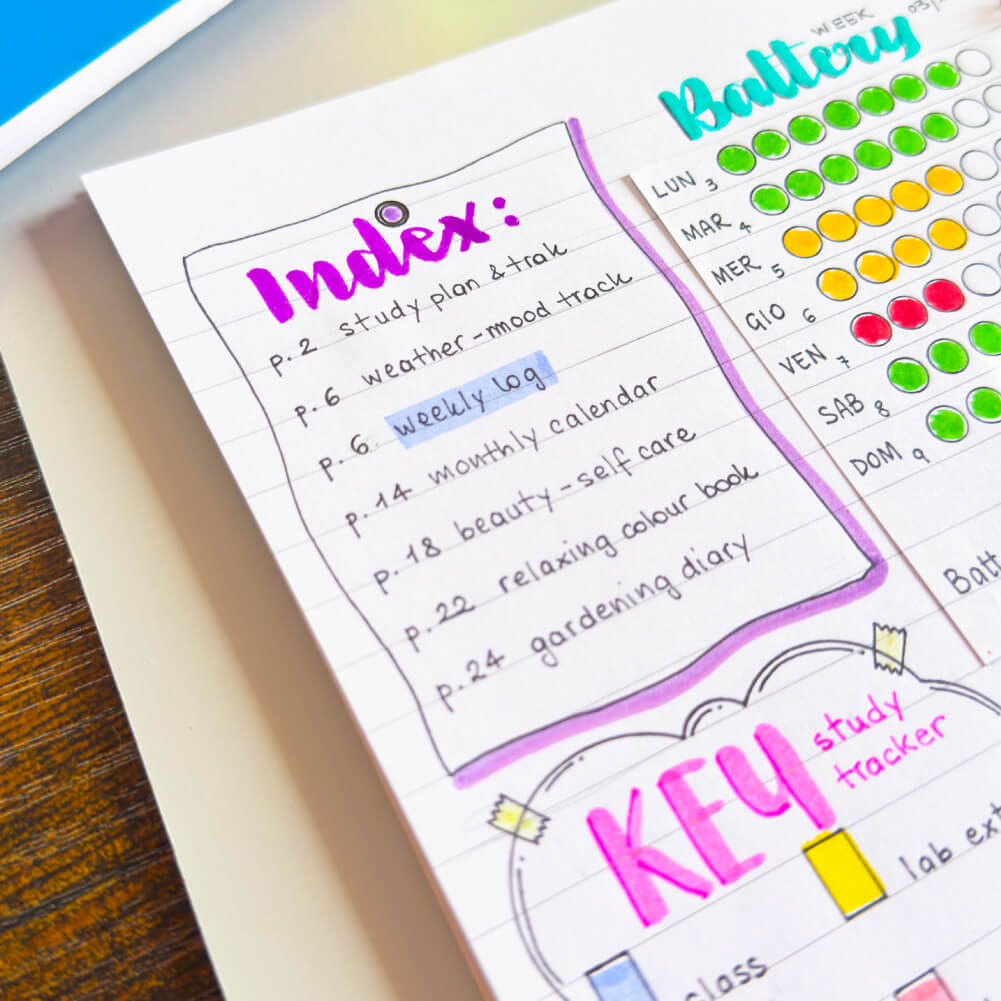 Index:
p. 2 study plan & trak
p. 6 weather - mood track
p. 6 weekly log
p. 14 monthly calendar
p. 18 beauty - self care
p. 22 relaxing colour book
p. 24 gardening diary
WEEK 03/
Battery
LUN 3
MAR 4
MER 5
GIO 6
VEN 7
SAB 8
DOM 9
Batt
KEY study
tracker
lab ext
class